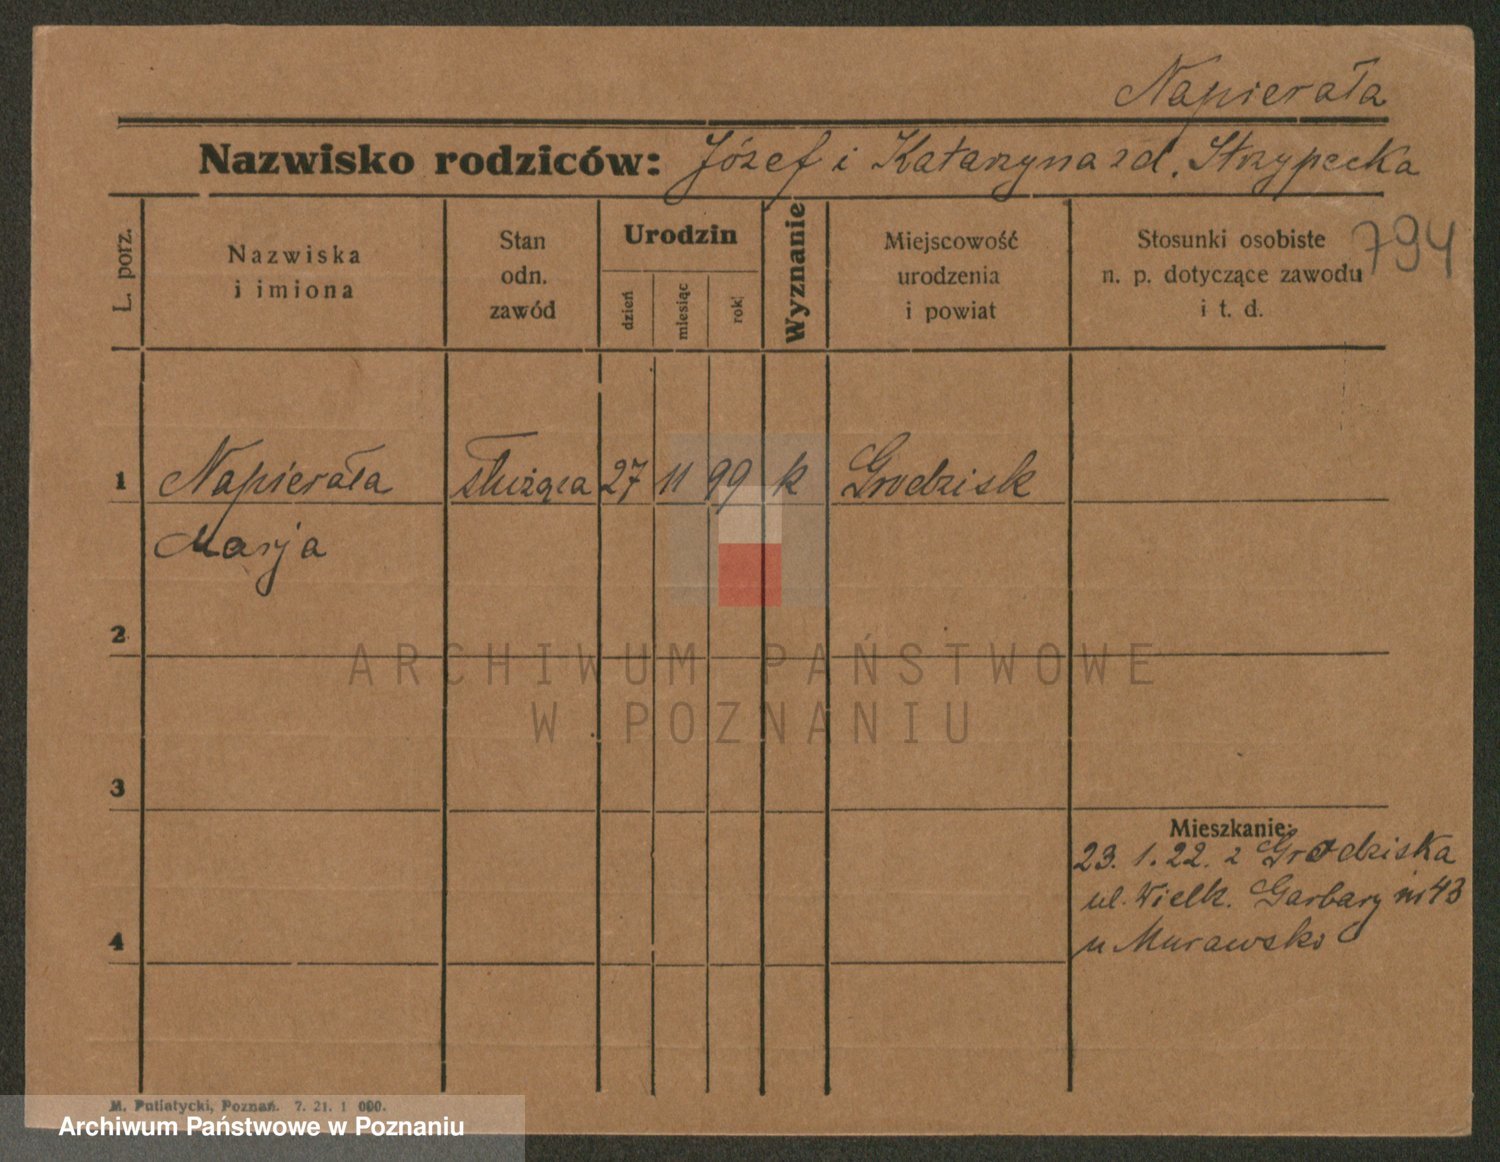 Napierała
Nazwisko rodziców: Józef i Katarzyna zd. Strzypecka
L. porz.
Nazwiska
i imiona
Stan
odn.
zawód
Urodzin
dzień
miesiąc
rok
Wyznanie
Miejscowość
urodzenia
i powiat
Stosunki osobiste
n. p. dotyczące zawodu
i t. d.
794
1 Napierała służąca 27 11 99 k Grodzisk
Marja
2
3
4
Mieszkanie:
23. 1. 22. z Grodziska
ul. Wielk. Garbary nr 43
u Murawsko
ARCHIWUM PAŃSTWOWE
W POZNANIU
M. Putiatycki, Poznań. 7. 21. 1 000.
Archiwum Państwowe w Poznaniu